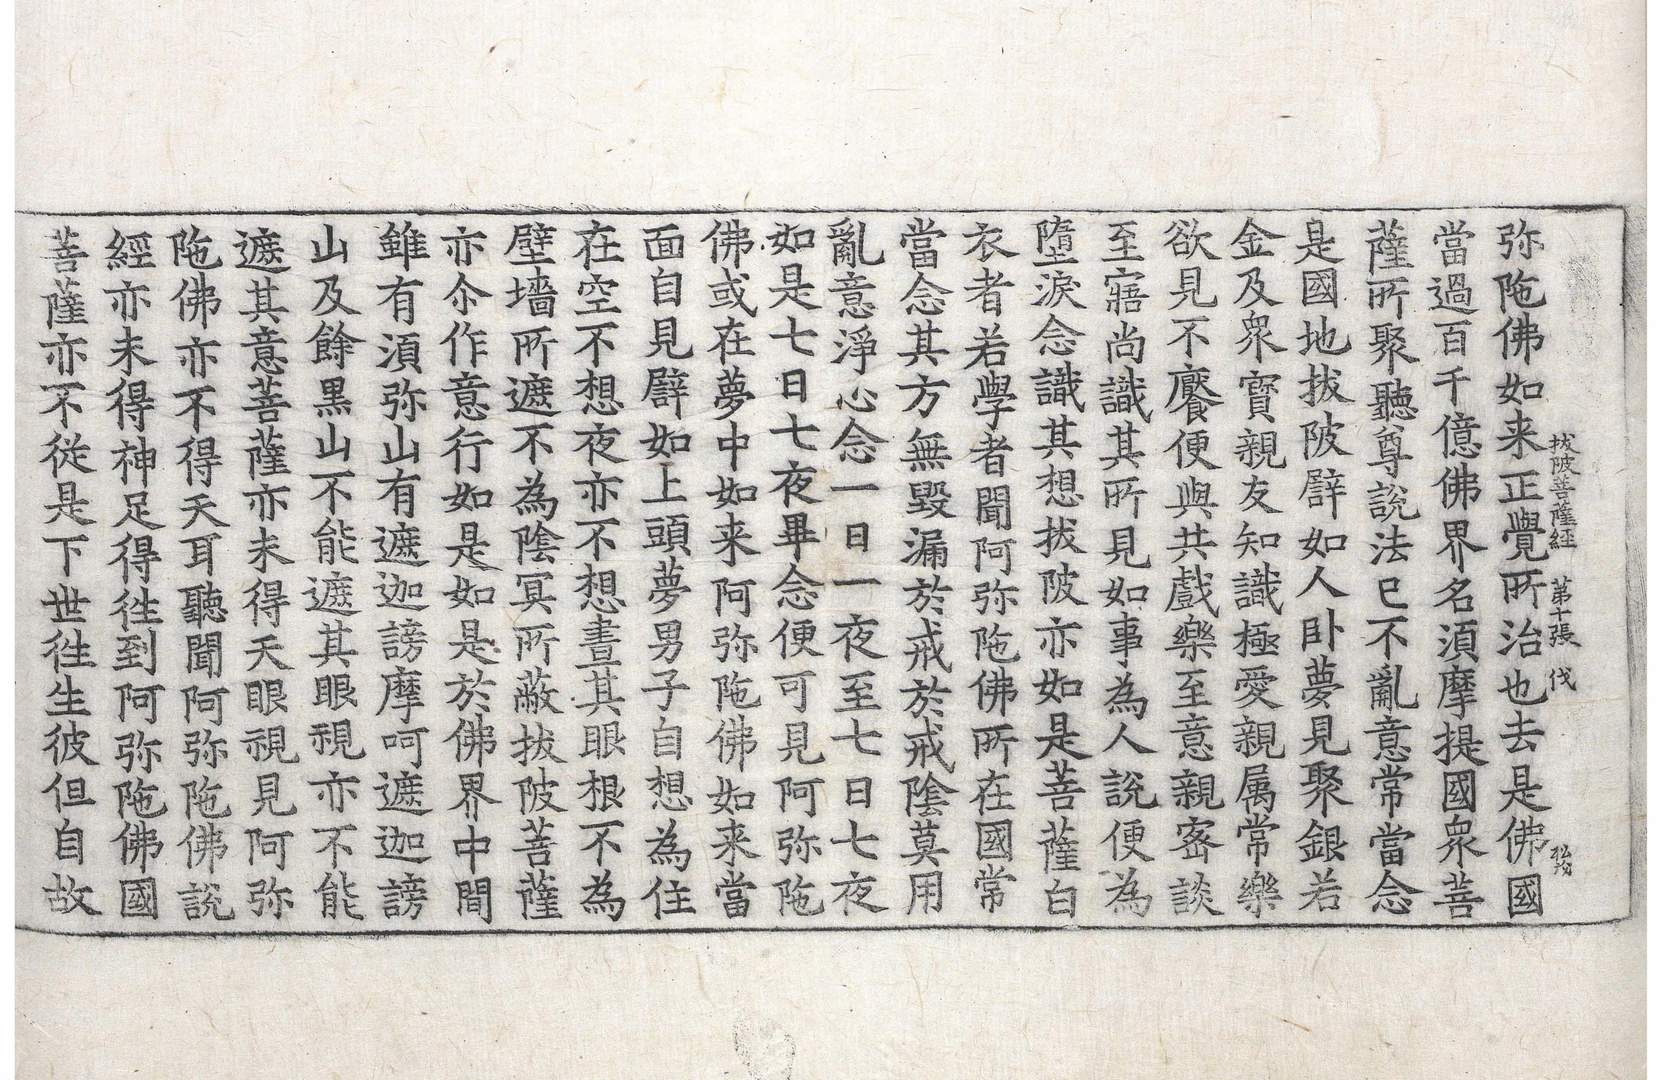 拔陂菩薩經 第十張 伐
弥陁佛如来正覺所治也去是佛國
當過百千億佛界名湏摩提國衆菩
薩所聚聽尊說法已不亂意常當念
是國地拔陂譬如人卧夢見聚銀若
金及衆寳親友知識極愛親属常樂
欲見不饜便與共戲樂至意親宻談
至寤尚識其所見如事為人說便為
墮淚念識其想拔陂亦如是菩薩白
衣者若學者聞阿弥陁佛所在國常
當念其方無毀漏於戒於戒陰莫用
亂意淨心念一日一夜至七日七夜
如是七日七夜畢念便可見阿弥陁
佛或在夢中如来阿弥陁佛如来當
面自見譬如上頭夢男子自想為住
在空不想夜亦不想晝其眼根不為
壁墻所遮不為陰冥所蔽拔陂菩薩
亦尒作意行如是如是於佛界中間
雖有湏弥山有遮迦謗摩呵遮迦謗
山及餘黒山不能遮其眼視亦不能
遮其意菩薩亦未得天眼視見阿弥
陁佛亦不得天耳聽聞阿弥陁佛說
經亦未得神足得徃到阿弥陁佛國
菩薩亦不從是下世徃生彼但自故